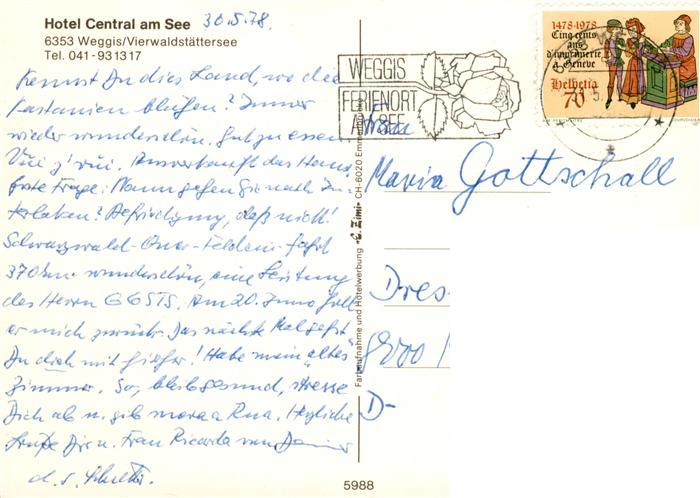 Hotel Central am See
30.5.78.
6353 Weggis/Vierwaldstättersee
Tel. 041-931317
Kennst Du dies Land, wo die
Kastanien blühen? Immer
wieder wunderschön. Gut zu essen.
Vis à vis. Ausverkauft das Haus,
erste Frage: Wann gehen Sie nach In-
terlaken? Befriedigung, daß nicht!
Schwarzwald- fahrt
370 km wunderschön, eine Leistung
des Herrn Am 20. Juno holt
er mich zurück. Das nächste Mal gehst
Du doch mit hierher! Habe mein "altes"
Zimmer. So, bleib gesund, stresse
Dich ab u. gib Herzliche
Grüße Dir u. Frau Ricarda von
d. s.
5988
Farbaufnahme und Hotelwerbung CH-6020 Emmenbrücke
WEGGIS
FERIENORT
AM SEE
1478-1978
Cinq cents
ans
d'imprimerie
à Genève
Helvetia
70
Frau
Maria Gottschall
Dres
8
D-